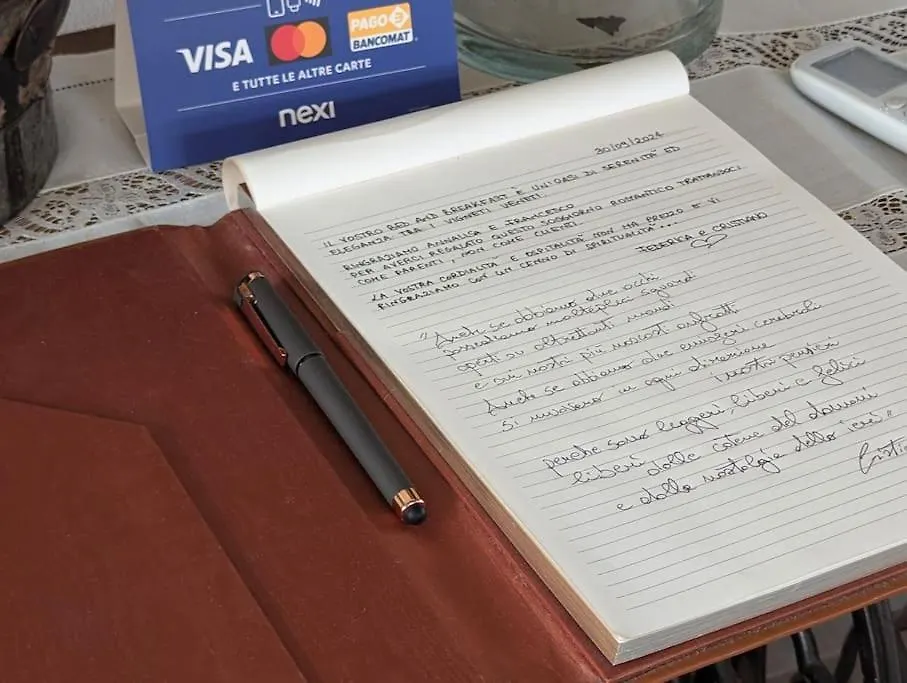 VISA
PAGO
BANCOMAT
E TUTTE LE ALTRE CARTE
nexi
30/09/2024
IL VOSTRO BED AND BREAKFAST È UN'OASI DI SERENITÀ ED
ELEGANZA TRA I VIGNETI VENETI.
RINGRAZIAMO ANNALISA E FRANCESCO
PER AVERCI REGALATO QUESTO SOGGIORNO ROMANTICO TRATTANDOCI
COME PARENTI, NON COME CLIENTI.
LA VOSTRA CORDIALITÀ E OSPITALITÀ NON HA PREZZO E VI
RINGRAZIAMO CON UN CENNO DI SPIRITUALITÀ....
FEDERICA e CRISTIANO
"Anche se abbiamo due occhi
possediamo molteplici sguardi
aperti su altrettanti mondi
e sui nostri più nascosti anfratti
Anche se abbiamo due emisferi cerebrali
si muovono in ogni direzione
i nostri pensieri
perché sono leggeri, liberi e felici
liberi dalle catene del domani
e dalla nostalgia dello ieri"